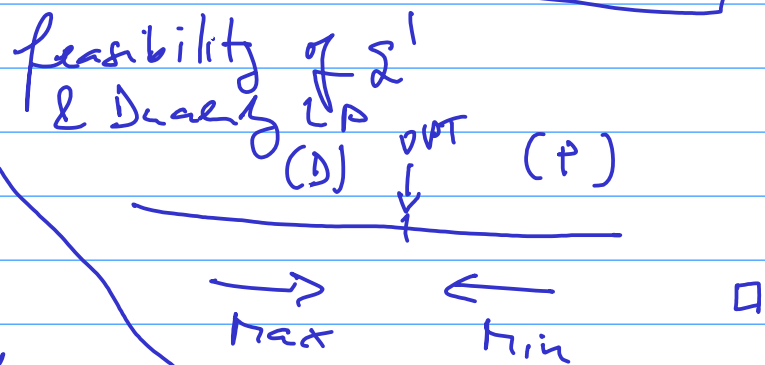 feasibility of g'
& Duality LP
OPT
(D) (P)
Max Min